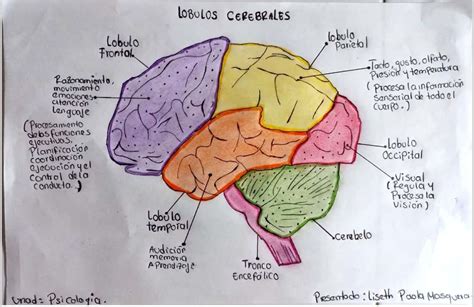 LOBULOS CEREBRALES
Lobulo
Frontal
Razonamiento,
movimiento
emociones
atención
lenguaje
(Procesamiento
de las funciones
ejecutivas.
Planificación
coordinación
ejecución y el
control de la
conducta.)
Lobulo
Parietal
Tacto, gusto, olfato,
Presion y temperatura
(Procesa la información
sensorial de todo el
cuerpo.)
Lobulo
Occipital
Visual
(Regula y
Procesa la
Visión)
Cerebelo
Lobulo
temporal
Audición
memoria
Aprendizaje
Tronco
Encefálico
Unad: Psicologia.
Presentado: Liseth Paola Mosquera